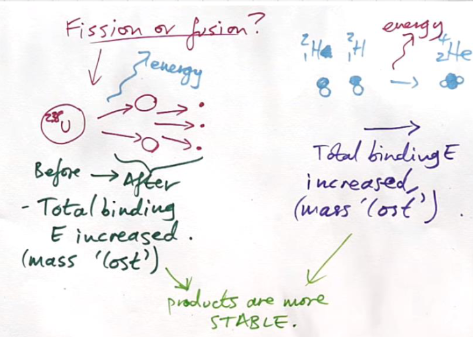 Fission or fusion?
energy
²³⁵U
Before → After
- Total binding
E increased.
(mass 'lost')
energy
²₁H ²₁H → ⁴₂He
Total binding E
increased,
(mass 'lost').
products are more
STABLE.